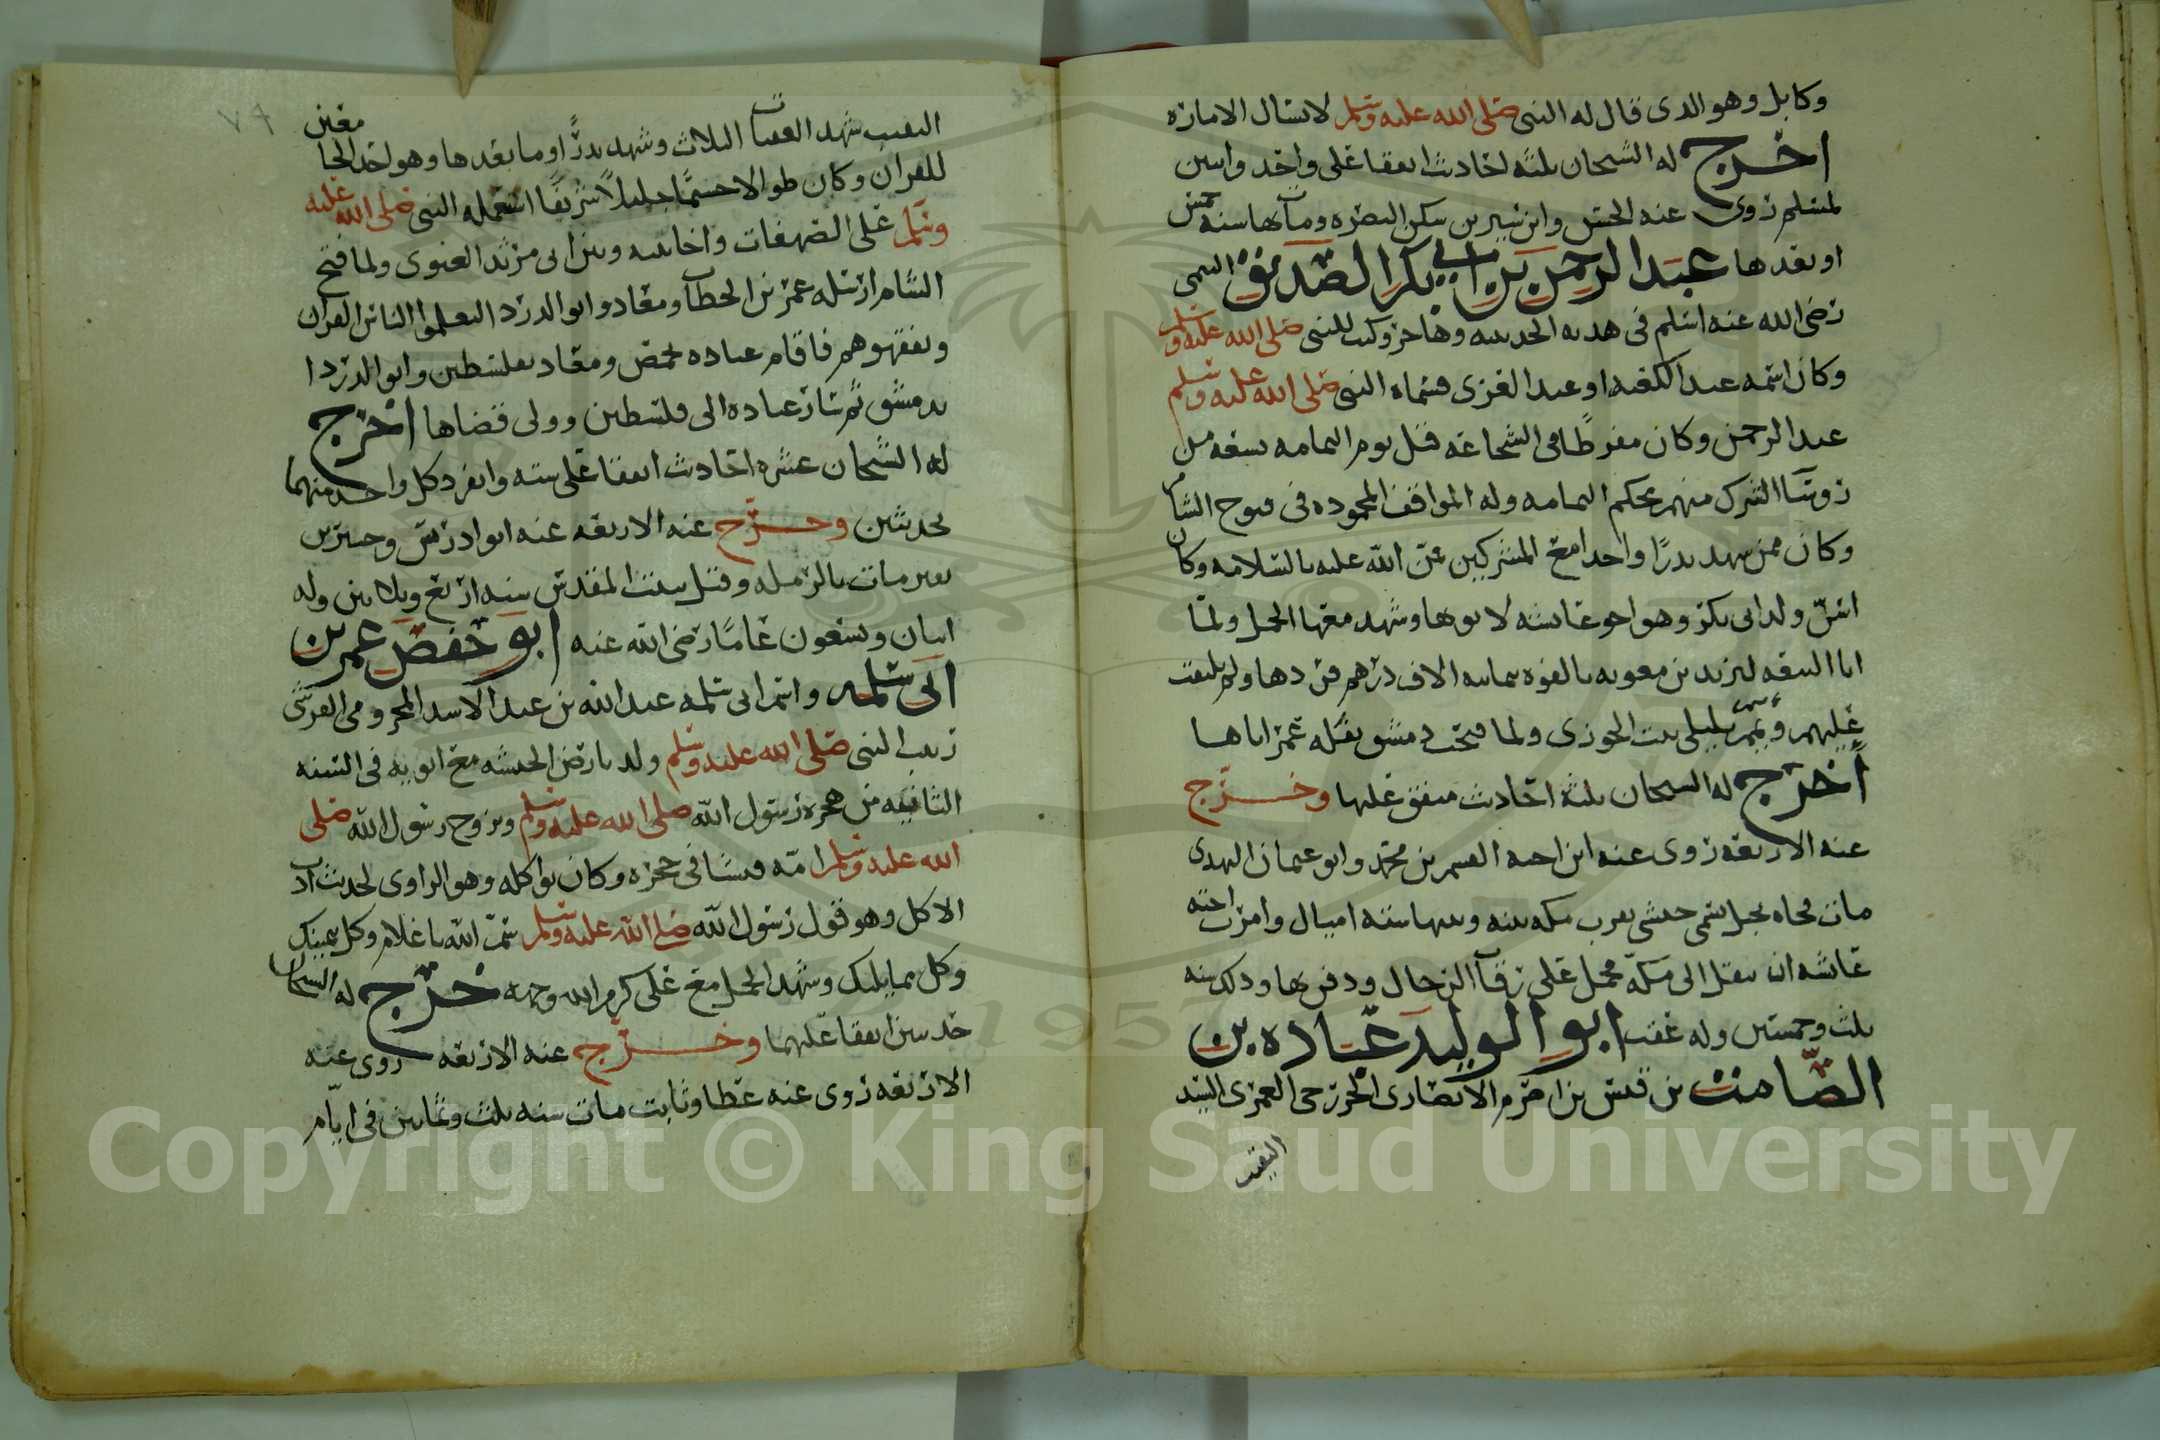 وكابل وهو الذي قال له النبي صلى الله عليه وسلم لا تسال الاماره
اخرج له الشيخان ثلثه احاديث اتفقا على واحد واثنين
لمسلم روى عنه الحسن وابن سيرين سكن البصره ومات بها سنه خمس
او بعدها عبد الرحمن بن ابي بكر الصديق التيمي
رضي الله عنه اسلم في هدنه الحديبيه وهاجر وكتب للنبي صلى الله عليه وسلم
وكان اسمه عبد الكعبه او عبد العزى فسماه النبي صلى الله عليه وسلم
عبد الرحمن وكان مفرطا في الشجاعه قتل يوم اليمامه سبعه من
روسا الشرك منهم محكم اليمامه وله المواقف المحموده في فتوح الشام
وكان ممن شهد بدرا واحدا مع المشركين من الله عليه بالسلامه وكان
اسن ولد ابي بكر وهو اخو عايشه لابويها وشهد معها الجمل ولما
ابا البيعه ليزيد بن معويه بالقوه بمايه الاف درهم فردها ولم يلتفت
عليهم وتيمم بليلى بنت الجودي ولما فتحت دمشق نفله عمر اياها
اخرج له الشيخان ثلثه احاديث متفق عليها وخرج
عنه الاربعه روى عنه ابن اخيه القسم بن محمد وابو عثمان النهدي
مات فجاه بجبل يسمى حبشي بقرب مكه بينه وبينها سته اميال وامرت اخته
عايشه ان ينقل الى مكه فحمل على رقاب الرجال ودفن بها وذلك سنه
ثلث وخمسين وله عقب ابو الوليد عباده بن
الصامت بن قيس بن اصرم الانصاري الخزرجي العمري السيد
النقيب
النقيب شهد العقبات الثلاث وشهد بدرا وما بعدها وهو احد الجامعين
للقران وكان طوالا جسيما جليلا شريفا استعمله النبي صلى الله عليه
وسلم على الصدقات واخا بينه وبين ابي مرثد الغنوي ولما فتح
الشام ارسله عمر بن الخطاب ومعاذ وابو الدردا ليعلموا الناس القران
ويفقهوهم فاقام عباده بحمص ومعاذ بفلسطين وابو الدردا
بدمشق ثم سار عباده الى فلسطين وولي قضاها اخرج
له الشيخان عشره احاديث اتفقا على سته وانفرد كل واحد منهما
بحديثين وخرج عنه الاربعه عنه ابو ادريس وجبير بن
نفير مات بالرمله وقيل ببيت المقدس سنه اربع وثلاثين وله
اثنان وسبعون عاما رضي الله عنه ابو حفص عمر بن
ابي سلمه واسم ابي سلمه عبد الله بن عبد الاسد المخزومي القرشي
ربيب النبي صلى الله عليه وسلم ولد بارض الحبشه مع ابويه في السنه
الثانيه من هجره رسول الله صلى الله عليه وسلم وتزوج رسول الله صلى
الله عليه وسلم امه فنشا في حجره وكان يواكله وهو الراوي لحديث ادب
الاكل وهو قول رسول الله صلى الله عليه وسلم سم الله يا غلام وكل بيمينك
وكل مما يليك وشهد الجمل مع علي كرم الله وجهه خرج له الشيخان
حديثين اتفقا عليهما وخرج عنه الاربعه روى عنه
الاربعه روى عنه عطا وثابت مات سنه ثلث وثمانين في ايام
Copyright © King Saud University
1957